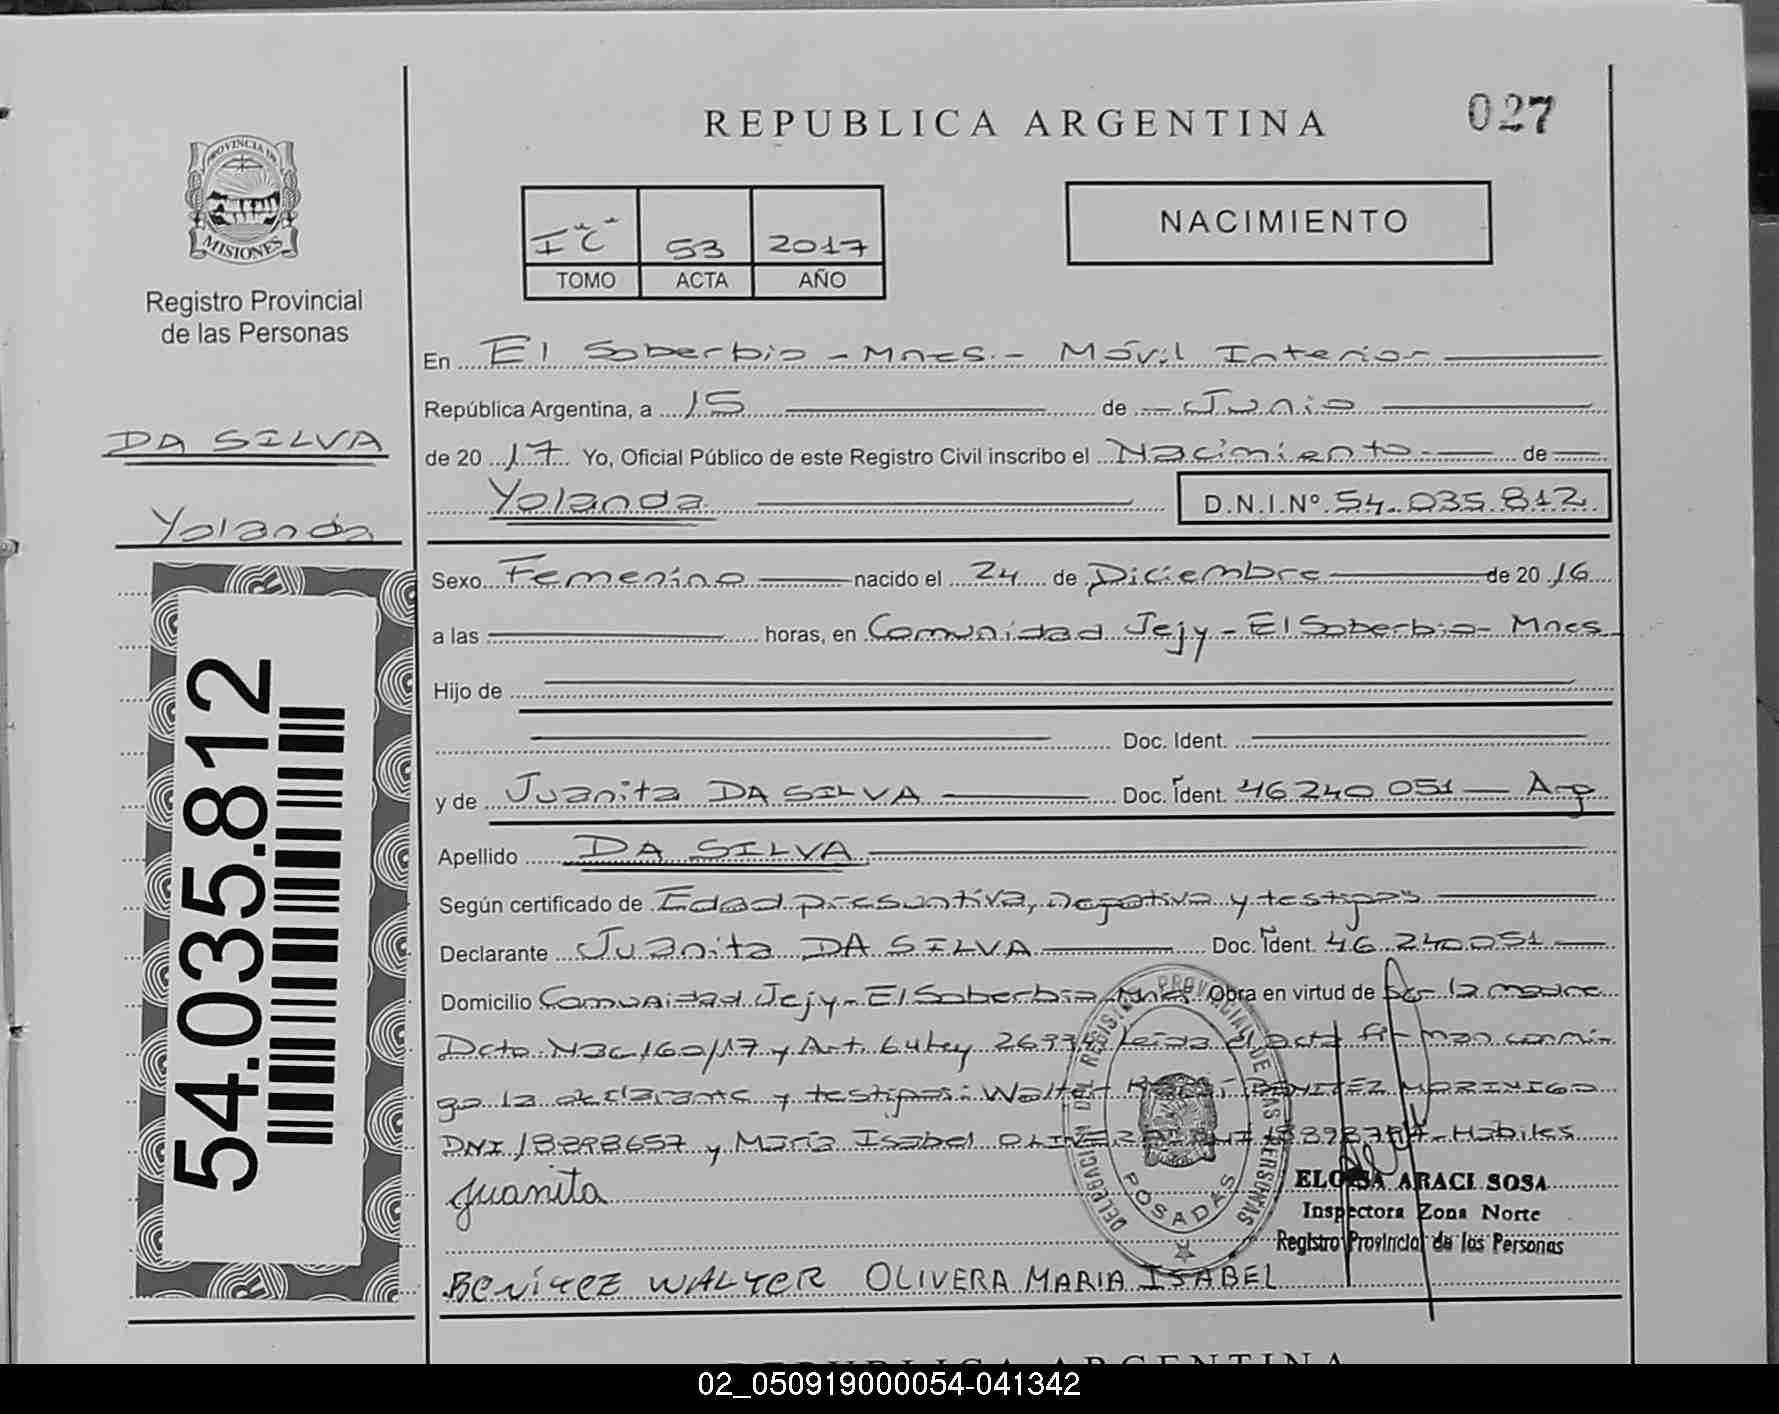 027
REPUBLICA ARGENTINA
PROVINCIA DE
MISIONES
Registro Provincial
de las Personas
DA SILVA
Yolanda
54.035.812
I "C" 53 2017
TOMO ACTA AÑO
NACIMIENTO
En El Soberbio - Mnes. - Móvil Interior
República Argentina, a 15 de Junio
de 2017 Yo, Oficial Público de este Registro Civil inscribo el Nacimiento de
Yolanda D.N.I.Nº 54.035.812
Sexo Femenino nacido el 24 de Diciembre de 2016
a las horas, en Comunidad Jejy - El Soberbio - Mnes
Hijo de
Doc. Ident.
y de Juanita DA SILVA Doc. Ident. 46240051 - Arg
Apellido DA SILVA
Según certificado de Edad presuntiva, negativa y testigos
Declarante Juanita DA SILVA Doc. Ident. 46.240.051
Domicilio Comunidad Jejy - El Soberbio - Mnes. Obra en virtud de ser la madre
Dcto. 160/17 y Art. Ley leída el acta firman conmi
go la declarante y testigos: Walter BENITEZ MORINIGO
DNI 18898657 y María Isabel OLIVERA Hábiles
Juanita
DELEGACION DEL REGISTRO PROVINCIAL DE LAS PERSONAS
POSADAS
ELOISA ARACI SOSA
Inspectora Zona Norte
Registro Provincial de las Personas
BENITEZ WALTER OLIVERA MARIA ISABEL
REPUBLICA ARGENTINA
02_050919000054-041342